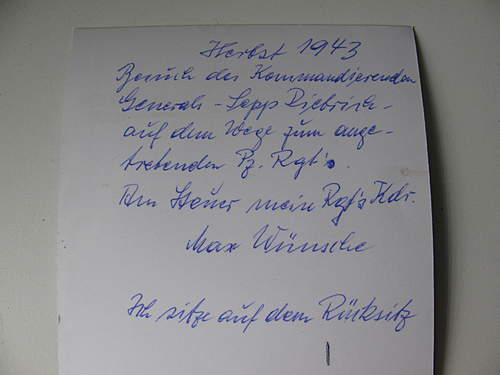 Herbst 1943
Besuch des Kommandierenden
Generals - Sepp Dietrich -
auf dem Wege zum ange-
tretenden Pz. Rgt's.
Am Steuer mein Rgt's Kdr.
Max Wünsche
Ich sitze auf dem Rücksitz